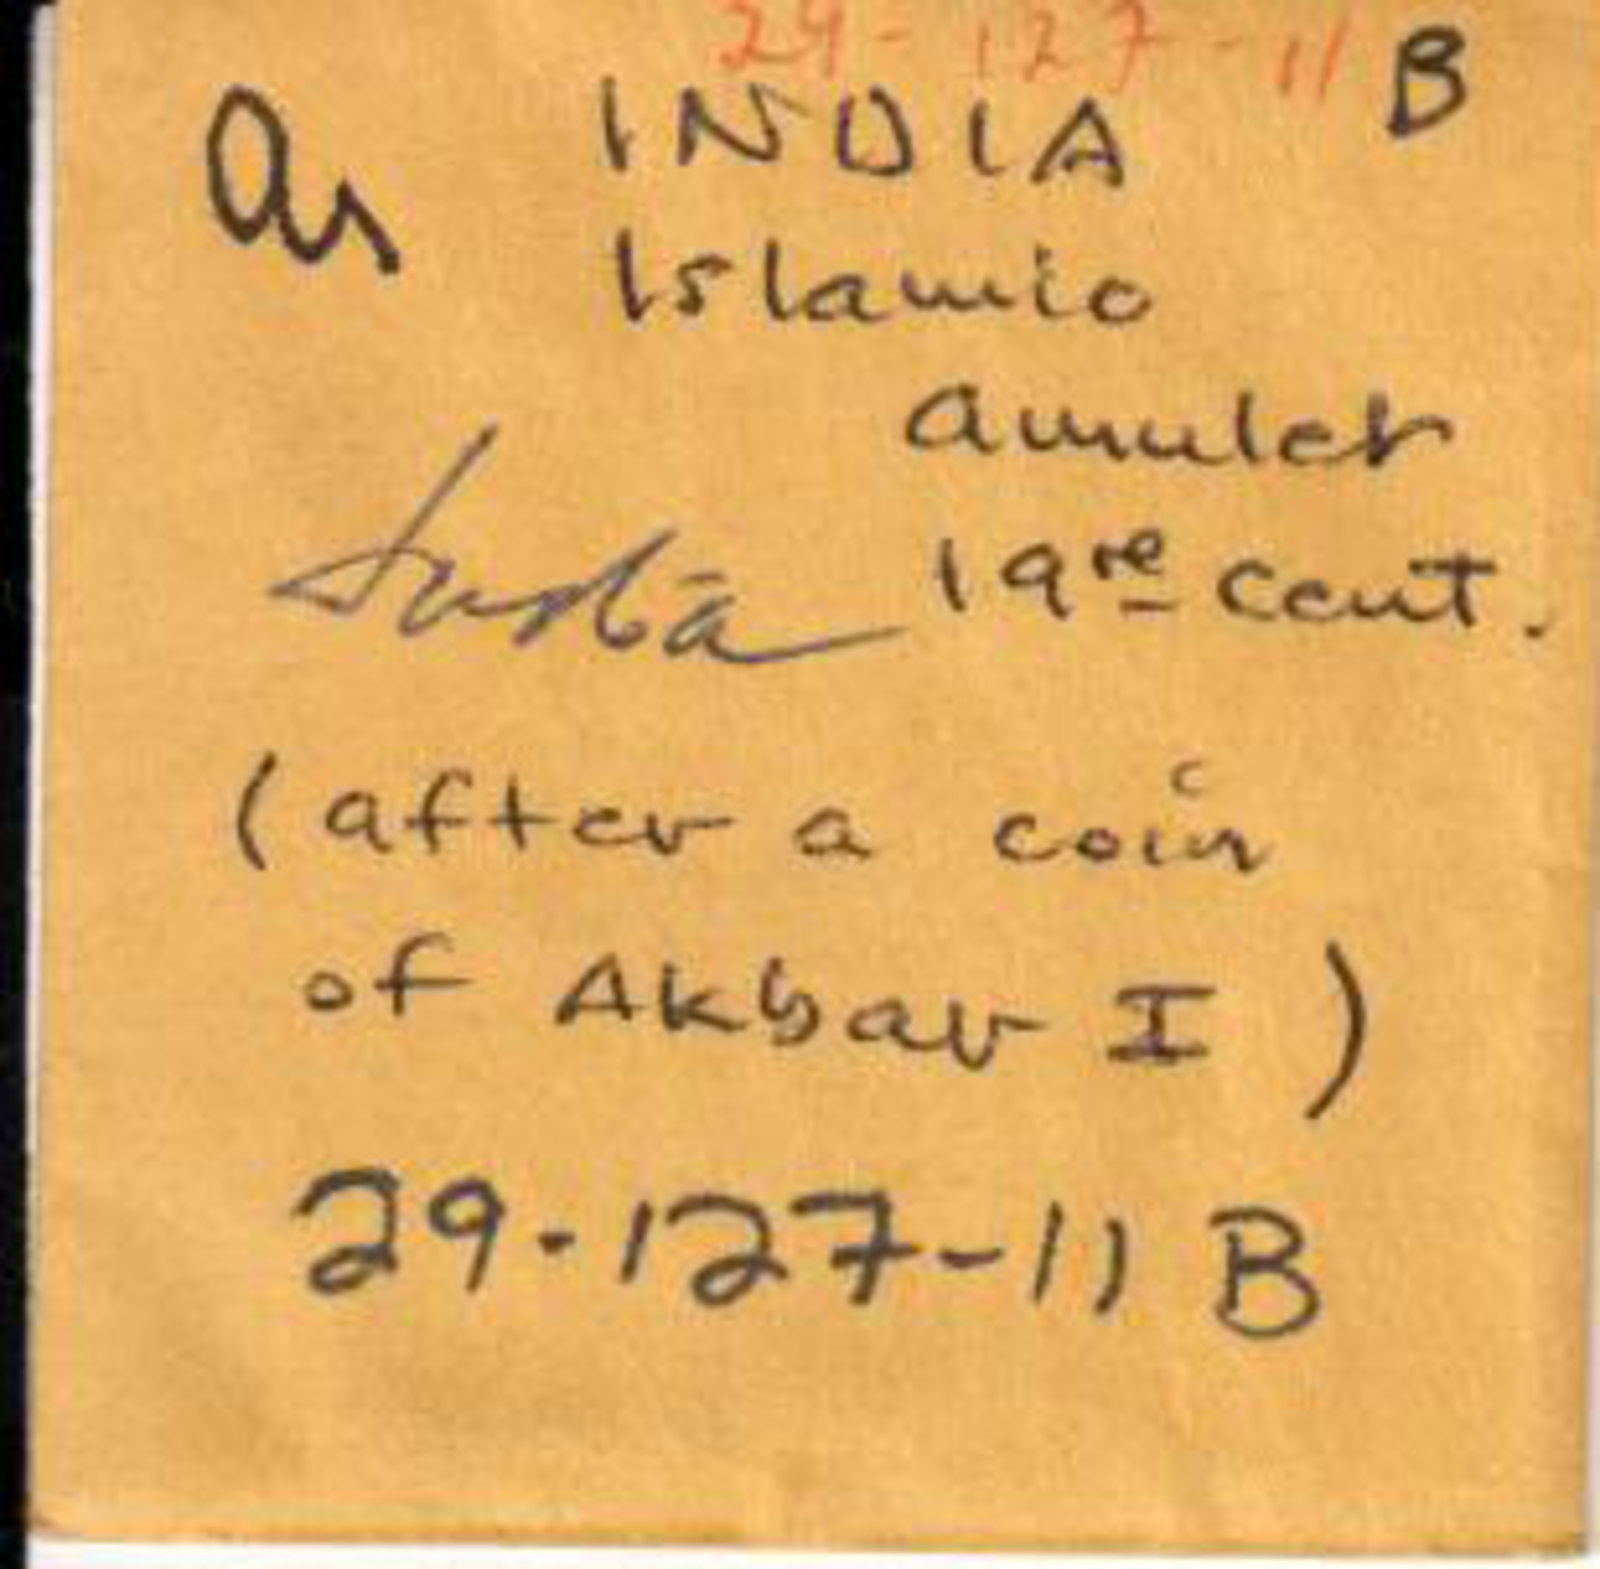 29-127-11 B
Ar INDIA
Islamic
amulet
India 19re cent.
(after a coin
of Akbar I)
29-127-11 B